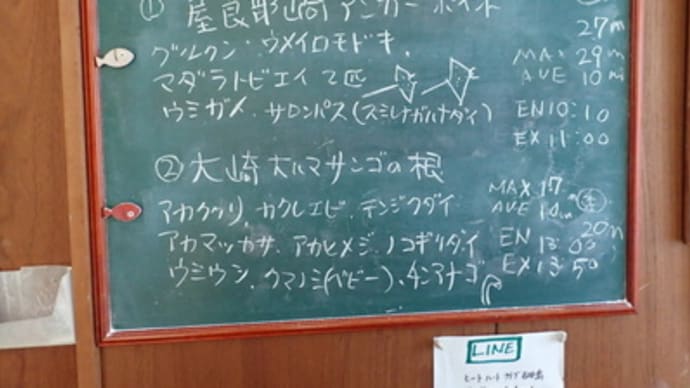 ① 屋良部崎アンカーポイント
27m
グルクン・ウメイロモドキ、 MAX 29m
マダラトビエイ2匹 AVE 10m
ウミガメ、サロンパス(スミレナガハナダイ) EN10:10
EX11:00
② 大崎ハルマサンゴの根 MAX 17m
アカククリ、カクレエビ、テンジクダイ AVE 10m
20m
アカマツカサ、アカヒメジ、ノコギリダイ EN 13:00
ウミウシ、クマノミ(ベビー)、チンアナゴ EX 13:50
LINE